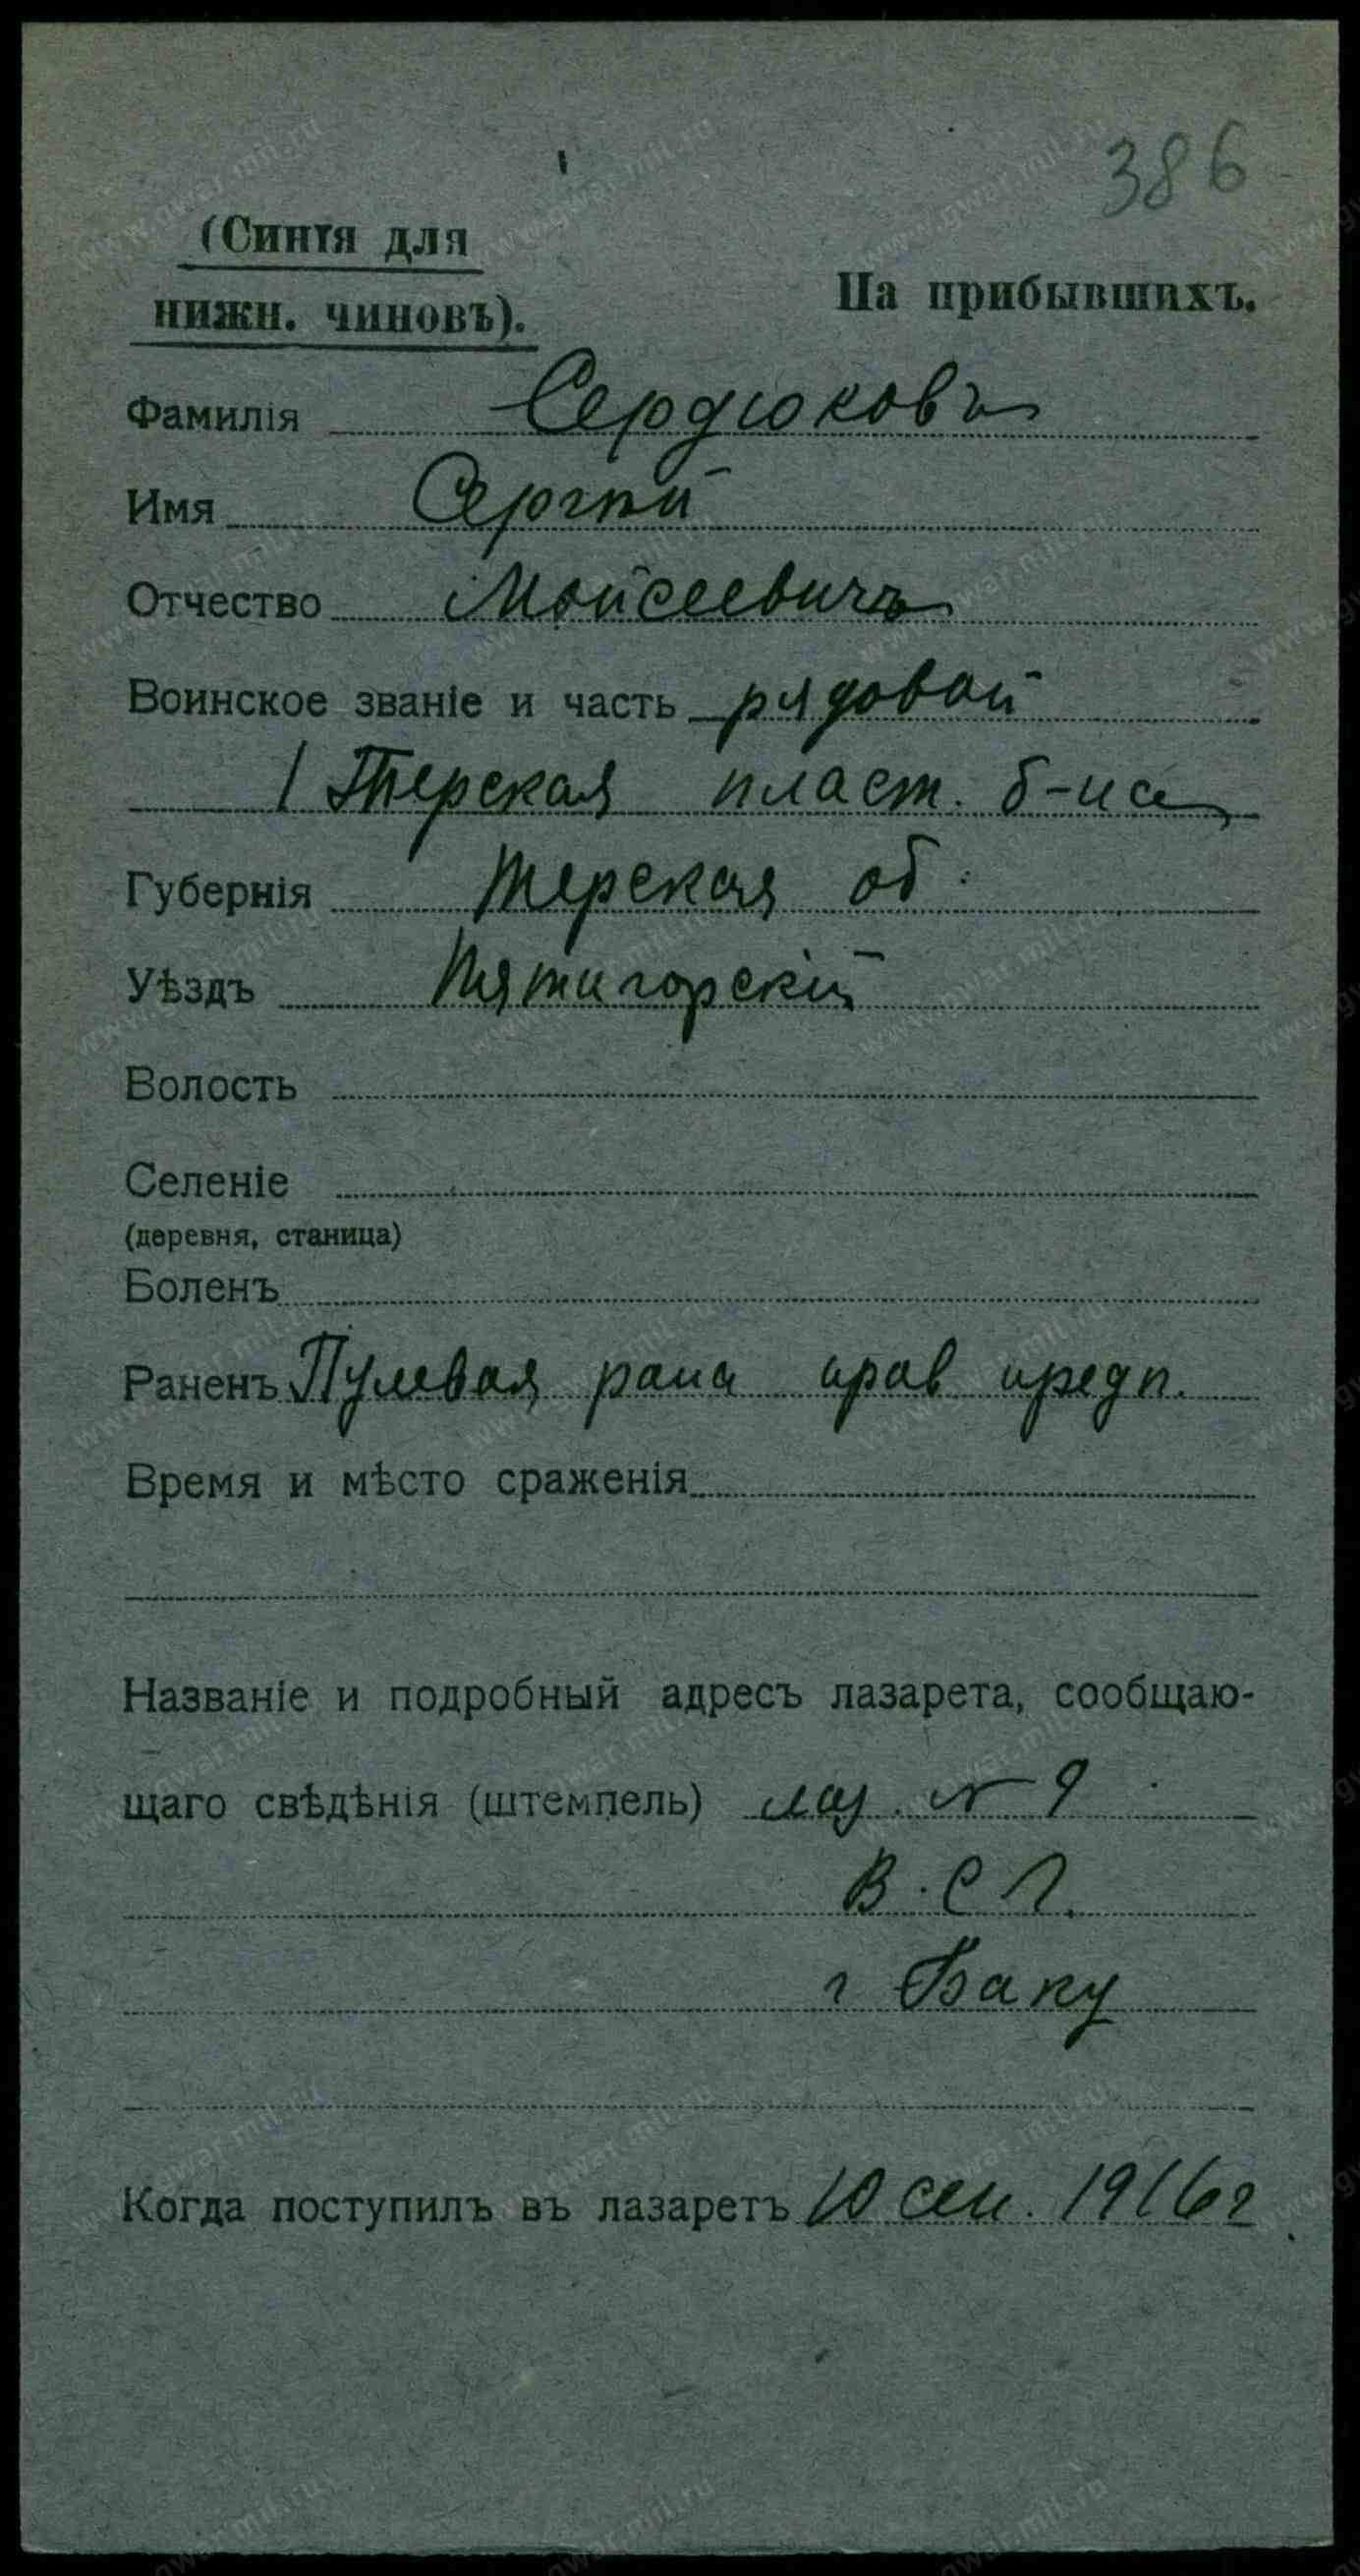 386
(Синія для
нижн. чиновъ).
На прибывшихъ.
Фамилія Сердюковъ
Имя Сергѣй
Отчество Мойсеевичъ
Воинское званіе и часть рядовой
1 Терская пласт. б-иса
Губернія Терская об.
Уѣздъ Пятигорскій
Волость
Селеніе
(деревня, станица)
Боленъ
Раненъ Пулевая рана прав предп.
Время и мѣсто сраженія
Названіе и подробный адресъ лазарета, сообщаю-
щаго свѣдѣнія (штемпель) лаз. № 9
В. С. Г.
г Баку
Когда поступилъ въ лазаретъ 10 сен. 1916 г.